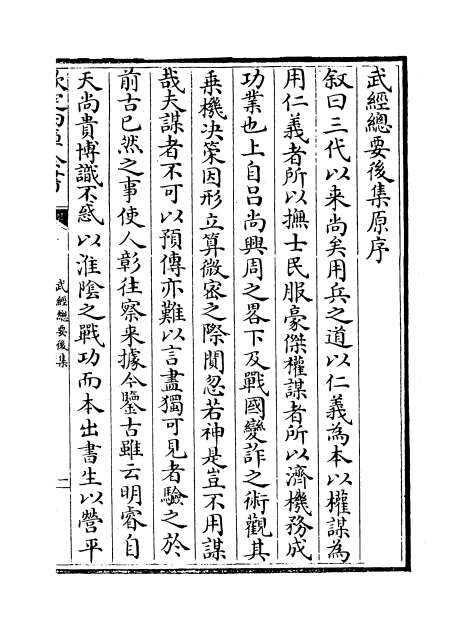 武經總要後集原序
叙曰三代以来尚矣用兵之道以仁義為本以權謀為
用仁義者所以撫士民服豪傑權謀者所以濟機務成
功業也上自吕尚興周之畧下及戰國變詐之術觀其
乗機决策因形立算微密之際闋忽若神是豈不用謀
哉夫謀者不可以預傳亦難以言盡獨可見者驗之於
前古已然之事使人彰往察来據今鑒古雖云明睿自
天尚貴博識不惑以淮陰之戰功而本出書生以營平
武經總要後集
二